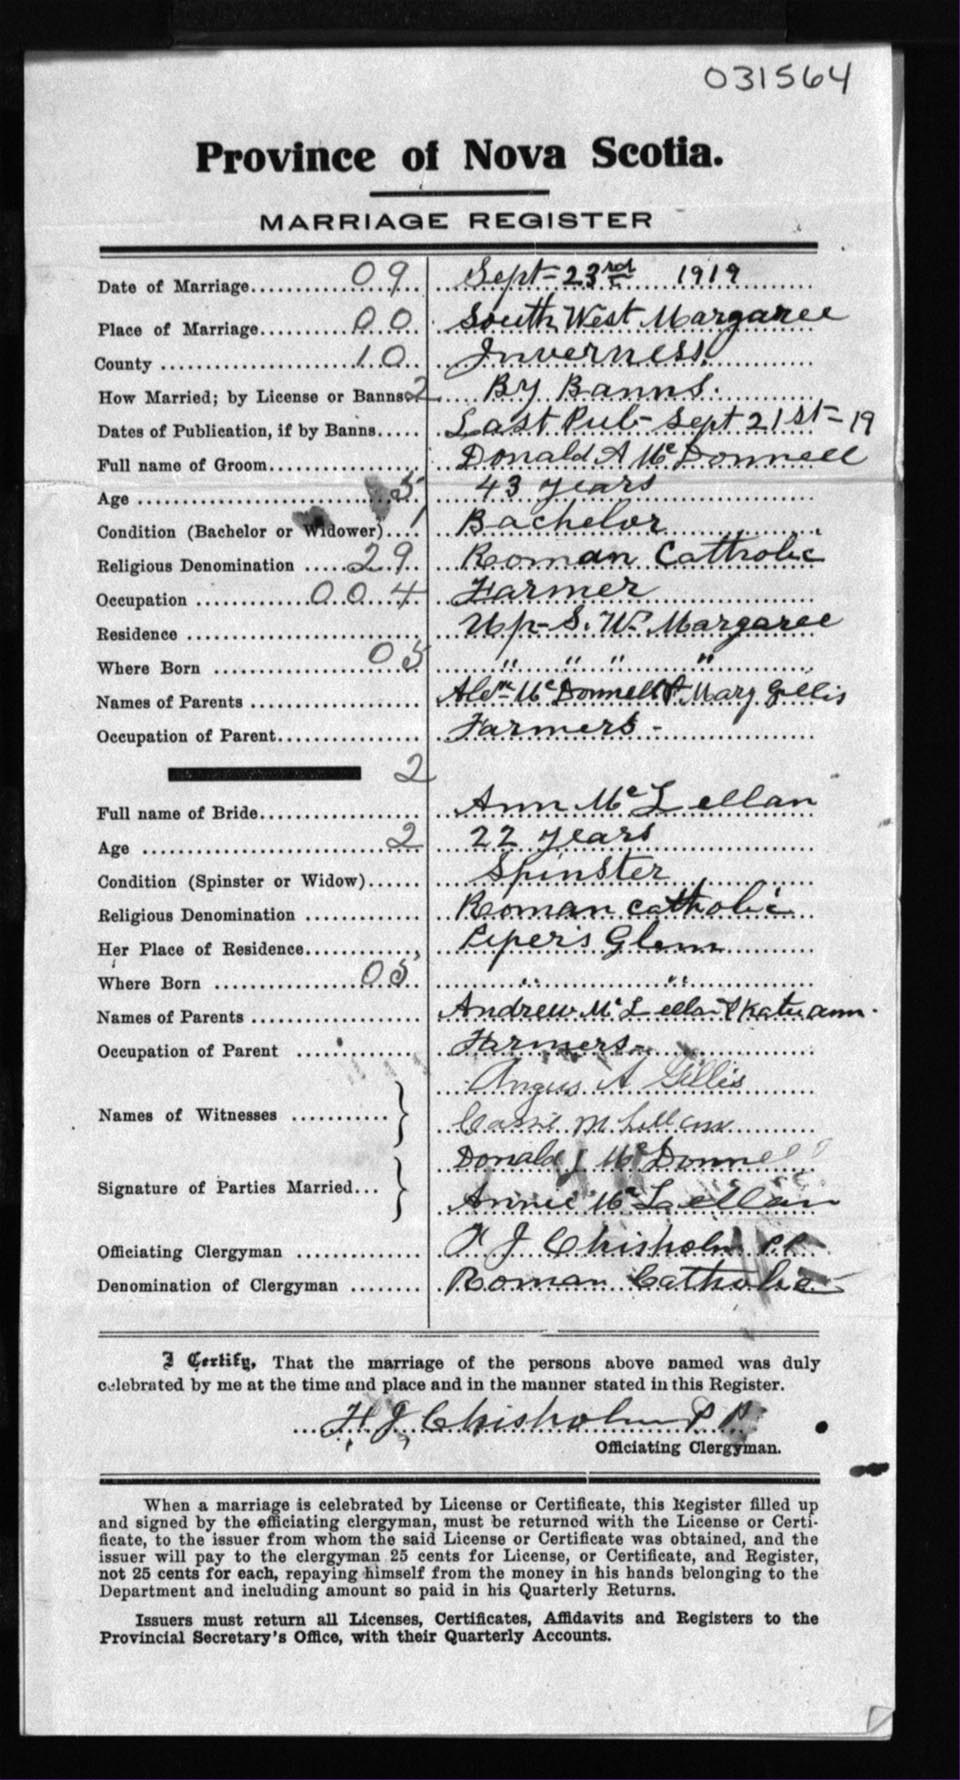 031564
Province of Nova Scotia.
MARRIAGE REGISTER
Date of Marriage 09 Sept- 23rd 1919
Place of Marriage 00 South West Margaree
County 10 Inverness
How Married; by License or Banns 2 By Banns.
Dates of Publication, if by Banns Last Pub- Sept 21st-19
Full name of Groom Donald A McDonnell
Age 5 43 years
Condition (Bachelor or Widower) 1 Bachelor
Religious Denomination 29 Roman Cattholic
Occupation 004 Farmer
Residence Up- S. W. Margaree
Where Born 05 " " " "
Names of Parents Alexr McDonnell & Mary Gillis
Occupation of Parent Farmers -
2
Full name of Bride Ann McLellan
Age 2 22 years
Condition (Spinster or Widow) Spinster
Religious Denomination Roman catholic
Her Place of Residence Piper's Glen
Where Born 05 " "
Names of Parents Andrew McLellan & Kate ann
Occupation of Parent Farmers -
Angus A Gillis
Names of Witnesses
Cassie McLellan
Donald J McDonnell
Signature of Parties Married...
Annie McLellan
Officiating Clergyman H J Chisholm P.P.
Denomination of Clergyman Roman Catholic
I Certify, That the marriage of the persons above named was duly
celebrated by me at the time and place and in the manner stated in this Register.
H J Chisholm P.P.
Officiating Clergyman.
When a marriage is celebrated by License or Certificate, this Register filled up
and signed by the officiating clergyman, must be returned with the License or Certi-
ficate, to the issuer from whom the said License or Certificate was obtained, and the
issuer will pay to the clergyman 25 cents for License, or Certificate, and Register,
not 25 cents for each, repaying himself from the money in his hands belonging to the
Department and including amount so paid in his Quarterly Returns.
Issuers must return all Licenses, Certificates, Affidavits and Registers to the
Provincial Secretary's Office, with their Quarterly Accounts.